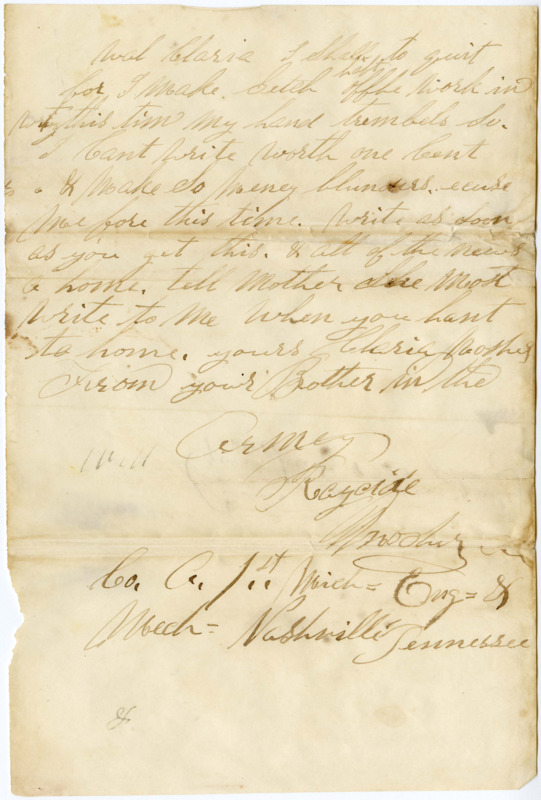 wal Claria I shall to quit
for I make Sutch work of the work in
this tim my hand trembels so.
I Cant write worth one Cent
& Make So Meney blunders. ecuse
Me fore this time. Write as Soon
as you get this. & all of the news
a home. tell Mother She Most
Write to Me When you hant
to home. yours Claria Mosher
From your Brother in the
Armey
Will
Mosher
Co. A. 1st Mich= Eng= &
Mech= Nashville Tennessee
&